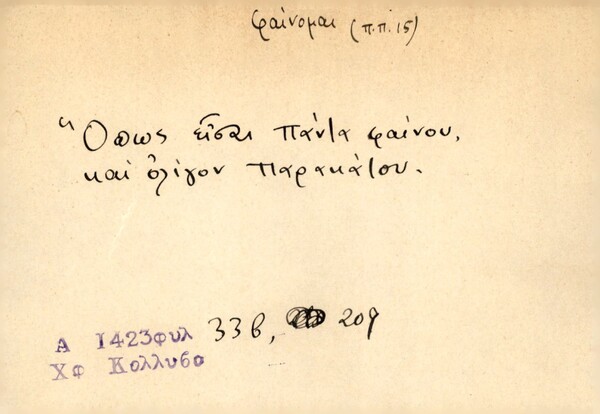 φαίνομαι (π.π. 15)
Ὅπως εἶσαι πάντα φαίνου,
καὶ ὀλίγον παρακάτου.
Α 1423φυλ 33β, 209
Χφ Κολλυβα